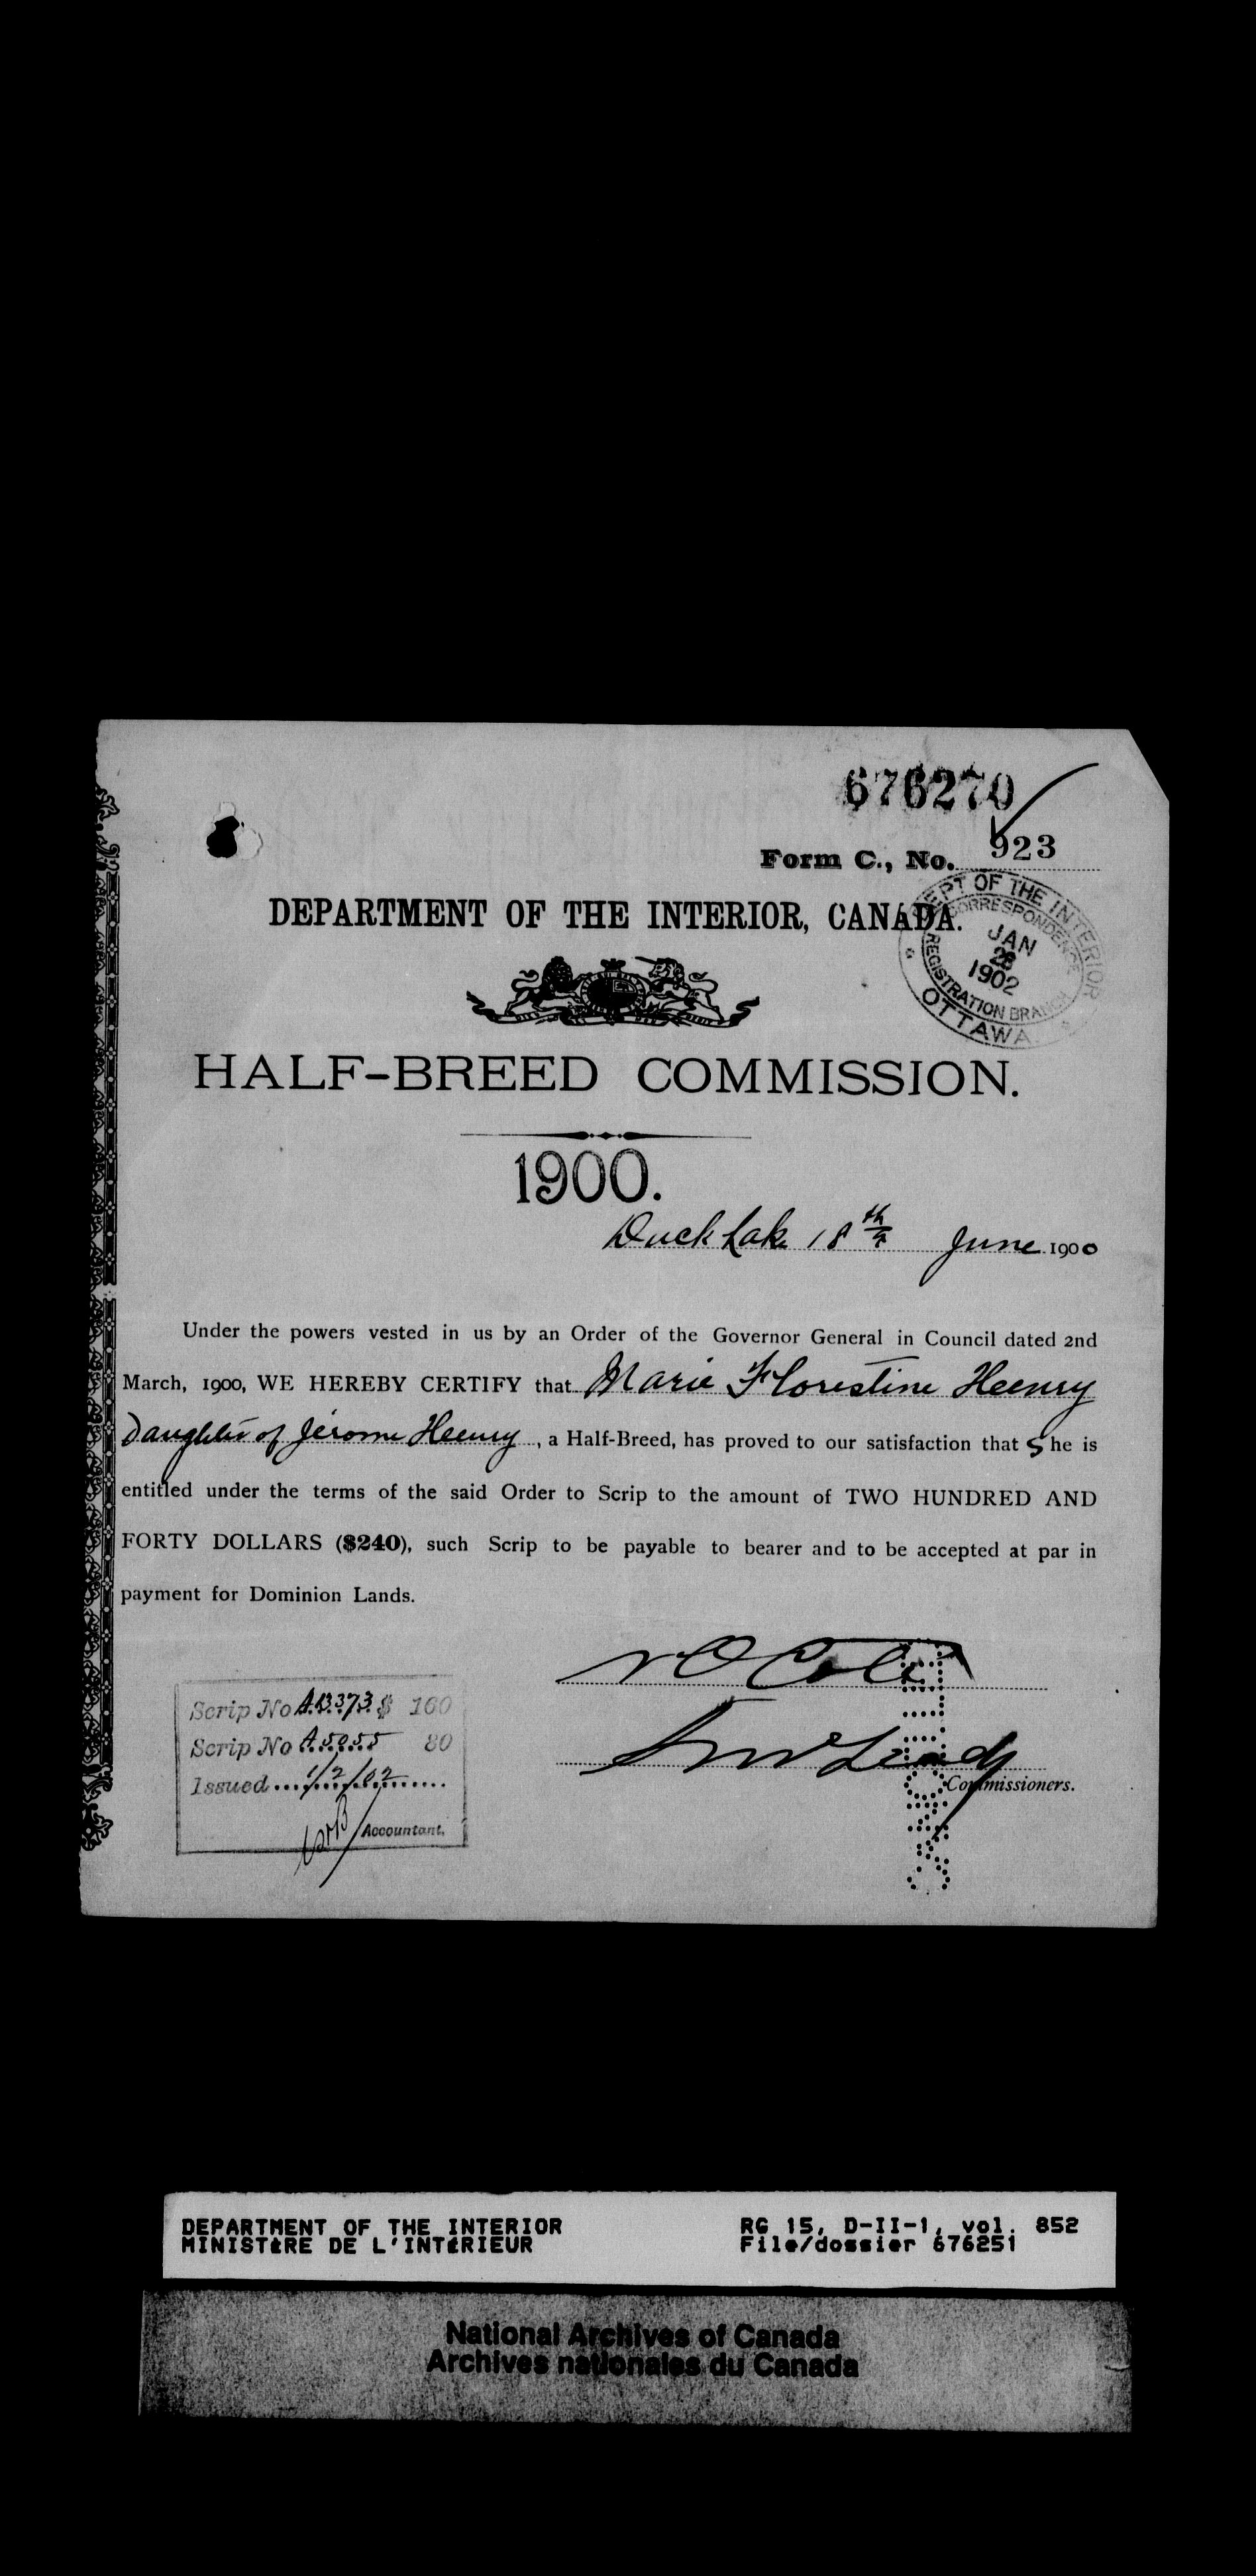 676270
Form C., No. 923
DEPARTMENT OF THE INTERIOR, CANADA.
DEPT OF THE INTERIOR
CORRESPONDENCE
JAN
28
1902
REGISTRATION BRANCH
OTTAWA.
HALF-BREED COMMISSION.
1900.
Duck Lake 18th June 1900
Under the powers vested in us by an Order of the Governor General in Council dated 2nd
March, 1900, WE HEREBY CERTIFY that Marie Florestine Heenry
Daughter of Jérome Heenry, a Half-Breed, has proved to our satisfaction that She is
entitled under the terms of the said Order to Scrip to the amount of TWO HUNDRED AND
FORTY DOLLARS ($240), such Scrip to be payable to bearer and to be accepted at par in
payment for Dominion Lands.
Scrip No A13373 $ 160
Scrip No A5055 80
Issued 1/2/02
Accountant.
Commissioners.
DEPARTMENT OF THE INTERIOR RG 15, D-II-1, vol. 852
MINISTÈRE DE L'INTÉRIEUR File/dossier 676251
National Archives of Canada
Archives nationales du Canada